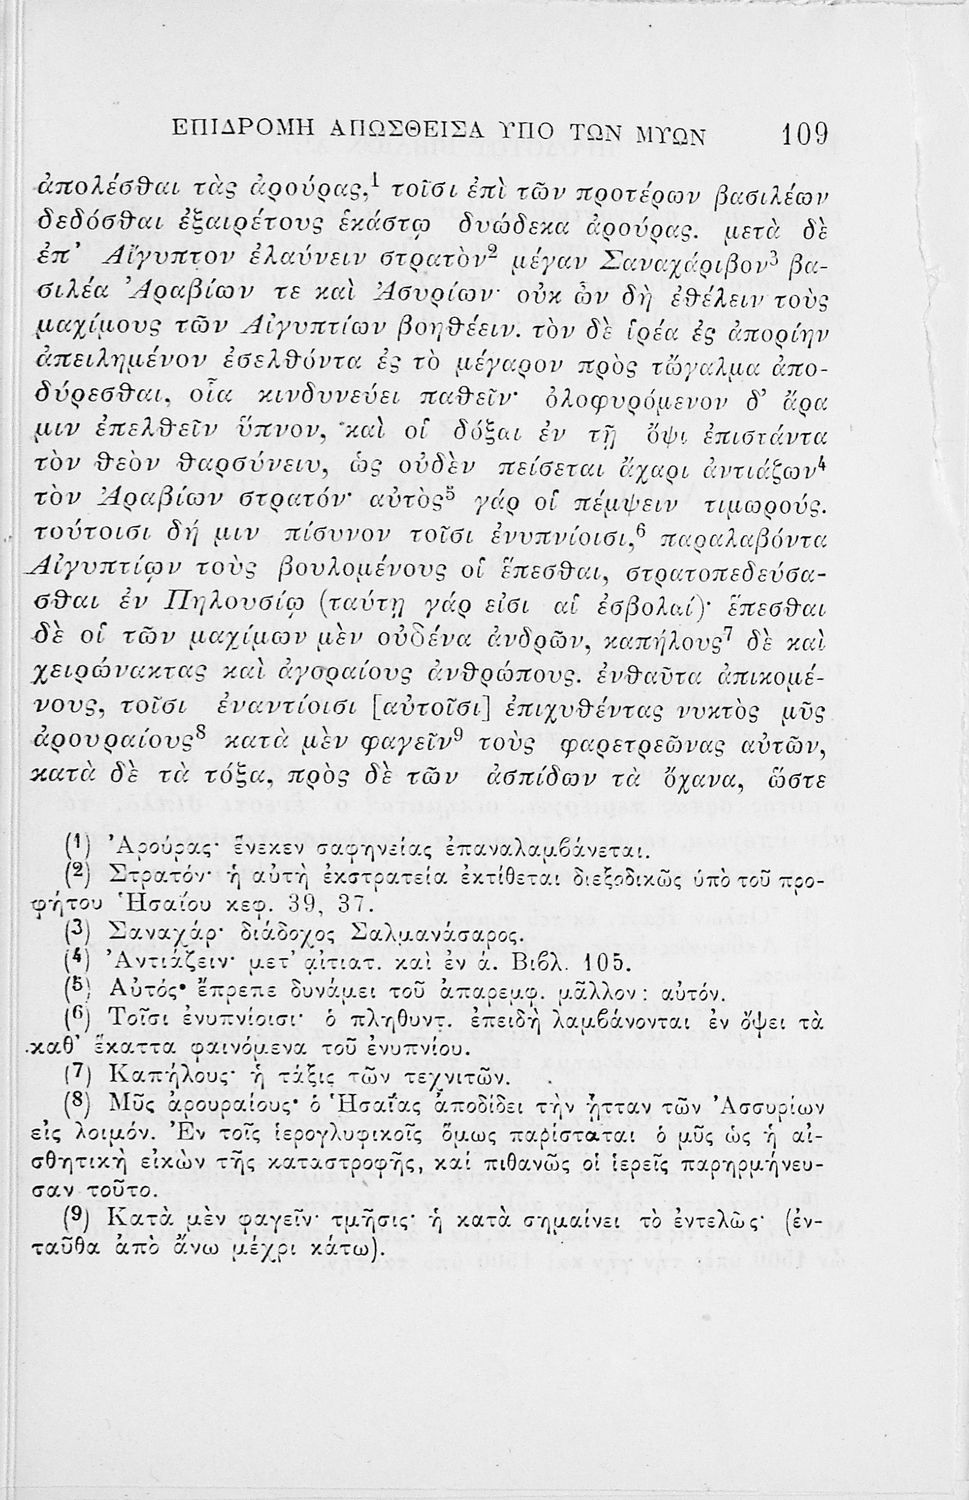 ΕΠΙΔΡΟΜΗ ΑΠΩΣΘΕΙΣΑ ΥΠΟ ΤΩΝ ΜΥΩΝ 109
ἀπολέσθαι τὰς ἀρούρας,¹ τοῖσι ἐπὶ τῶν προτέρων βασιλέων
δεδόσθαι ἐξαιρέτους ἑκάστῳ δυώδεκα ἀρούρας. μετὰ δὲ
ἐπ᾽ Αἴγυπτον ἐλαύνειν στρατὸν² μέγαν Σαναχάριβον³ βα-
σιλέα Ἀραβίων τε καὶ Ἀσυρίων· οὐκ ὦν δὴ ἐθέλειν τοὺς
μαχίμους τῶν Αἰγυπτίων βοηθέειν. τὸν δὲ ἱρέα ἐς ἀπορίην
ἀπειλημένον ἐσελθόντα ἐς τὸ μέγαρον πρὸς τὤγαλμα ἀπο-
δύρεσθαι, οἷα κινδυνεύει παθεῖν· ὀλοφυρόμενον δ᾽ ἄρα
μιν ἐπελθεῖν ὕπνον, καὶ οἱ δόξαι ἐν τῇ ὄψι ἐπιστάντα
τὸν θεὸν θαρσύνειν, ὡς οὐδὲν πείσεται ἄχαρι ἀντιάζων⁴
τὸν Ἀραβίων στρατόν· αὐτὸς⁵ γάρ οἱ πέμψειν τιμωρούς.
τούτοισι δή μιν πίσυνον τοῖσι ἐνυπνίοισι,⁶ παραλαβόντα
Αἰγυπτίων τοὺς βουλομένους οἱ ἕπεσθαι, στρατοπεδεύσα-
σθαι ἐν Πηλουσίῳ (ταύτῃ γάρ εἰσι αἱ ἐσβολαί)· ἕπεσθαι
δὲ οἱ τῶν μαχίμων μὲν οὐδένα ἀνδρῶν, καπήλους⁷ δὲ καὶ
χειρώνακτας καὶ ἀγοραίους ἀνθρώπους. ἐνθαῦτα ἀπικομέ-
νους, τοῖσι ἐναντίοισι [αὐτοῖσι] ἐπιχυθέντας νυκτὸς μῦς
ἀρουραίους⁸ κατὰ μὲν φαγεῖν⁹ τοὺς φαρετρεῶνας αὐτῶν,
κατὰ δὲ τὰ τόξα, πρὸς δὲ τῶν ἀσπίδων τὰ ὄχανα, ὥστε
(1) Ἀρούρας· ἕνεκεν σαφηνείας ἐπαναλαμβάνεται.
(2) Στρατόν· ἡ αὐτὴ ἐκστρατεία ἐκτίθεται διεξοδικῶς ὑπὸ τοῦ προ-
φήτου Ἡσαΐου κεφ. 39, 37.
(3) Σαναχάρ· διάδοχος Σαλμανάσαρος.
(4) Ἀντιάζειν· μετ᾽ αἰτιατ. καὶ ἐν ά. Βιβλ. 105.
(5) Αὐτός· ἔπρεπε δυνάμει τοῦ ἀπαρεμφ. μᾶλλον: αὐτόν.
(6) Τοῖσι ἐνυπνίοισι· ὁ πληθυντ. ἐπειδὴ λαμβάνονται ἐν ὄψει τὰ
καθ᾽ ἕκαττα φαινόμενα τοῦ ἐνυπνίου.
(7) Καπήλους· ἡ τάξις τῶν τεχνιτῶν.
(8) Μῦς ἀρουραίους· ὁ Ἡσαΐας ἀποδίδει τὴν ἧτταν τῶν Ἀσσυρίων
εἰς λοιμόν. Ἐν τοῖς ἱερογλυφικοῖς ὅμως παρίσταται ὁ μῦς ὡς ἡ αἰ-
σθητικὴ εἰκὼν τῆς καταστροφῆς, καί πιθανῶς οἱ ἱερεῖς παρηρμήνευ-
σαν τοῦτο.
(9) Κατὰ μὲν φαγεῖν· τμῆσις· ἡ κατὰ σημαίνει τὸ ἐντελῶς· (ἐν-
ταῦθα ἀπὸ ἄνω μέχρι κάτω).